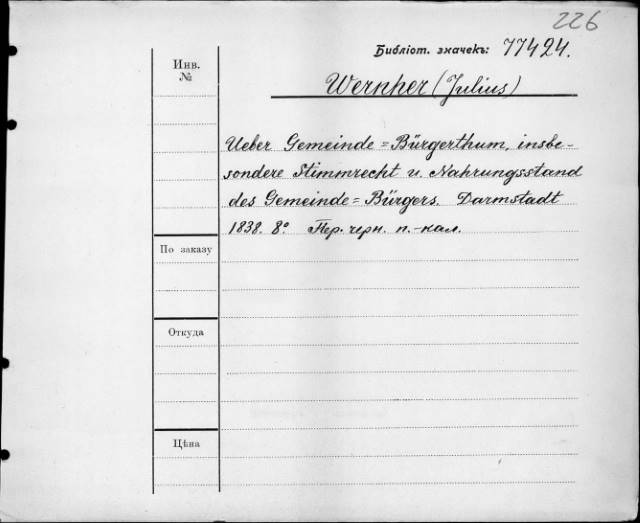 226
Библіот. значекъ: 77424.
Инв.
№
Wernher (Julius)
Ueber Gemeinde=Bürgerthum, insbe-
sondere Stimmrecht u. Nahrungsstand
des Gemeinde=Bürgers. Darmstadt
1838. 8º. Пер. черн. п.-кал.
По заказу
Откуда
Цѣна